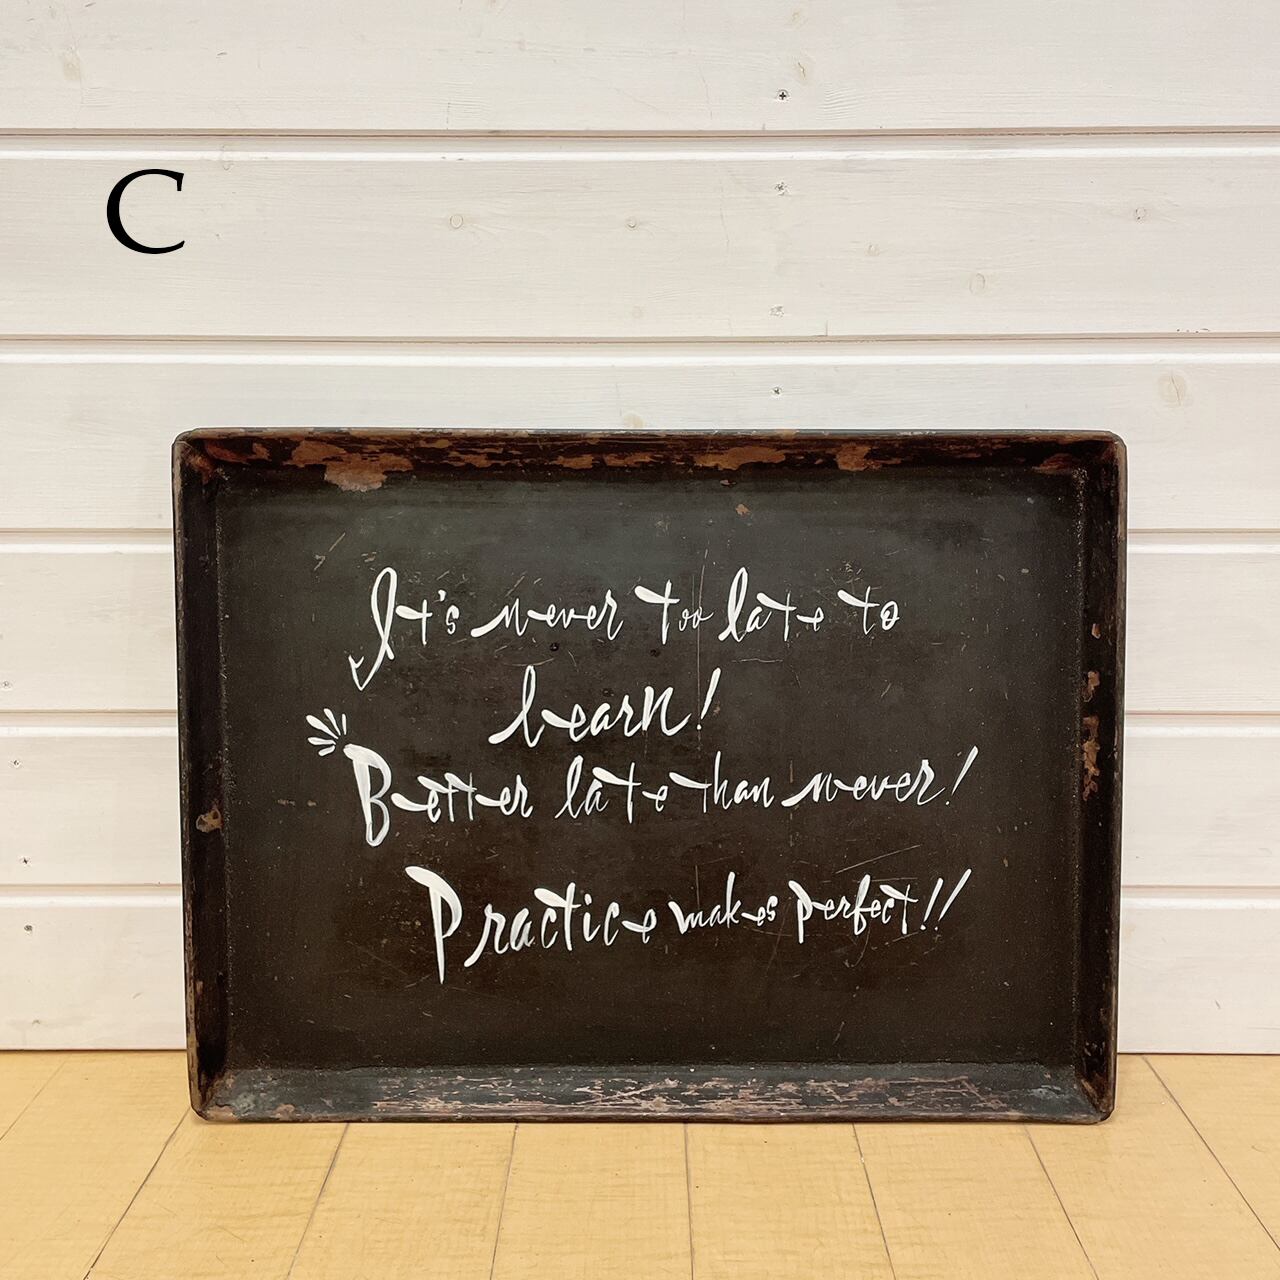 C
It's never too late to
learn!
Better late than never!
Practice makes perfect!!